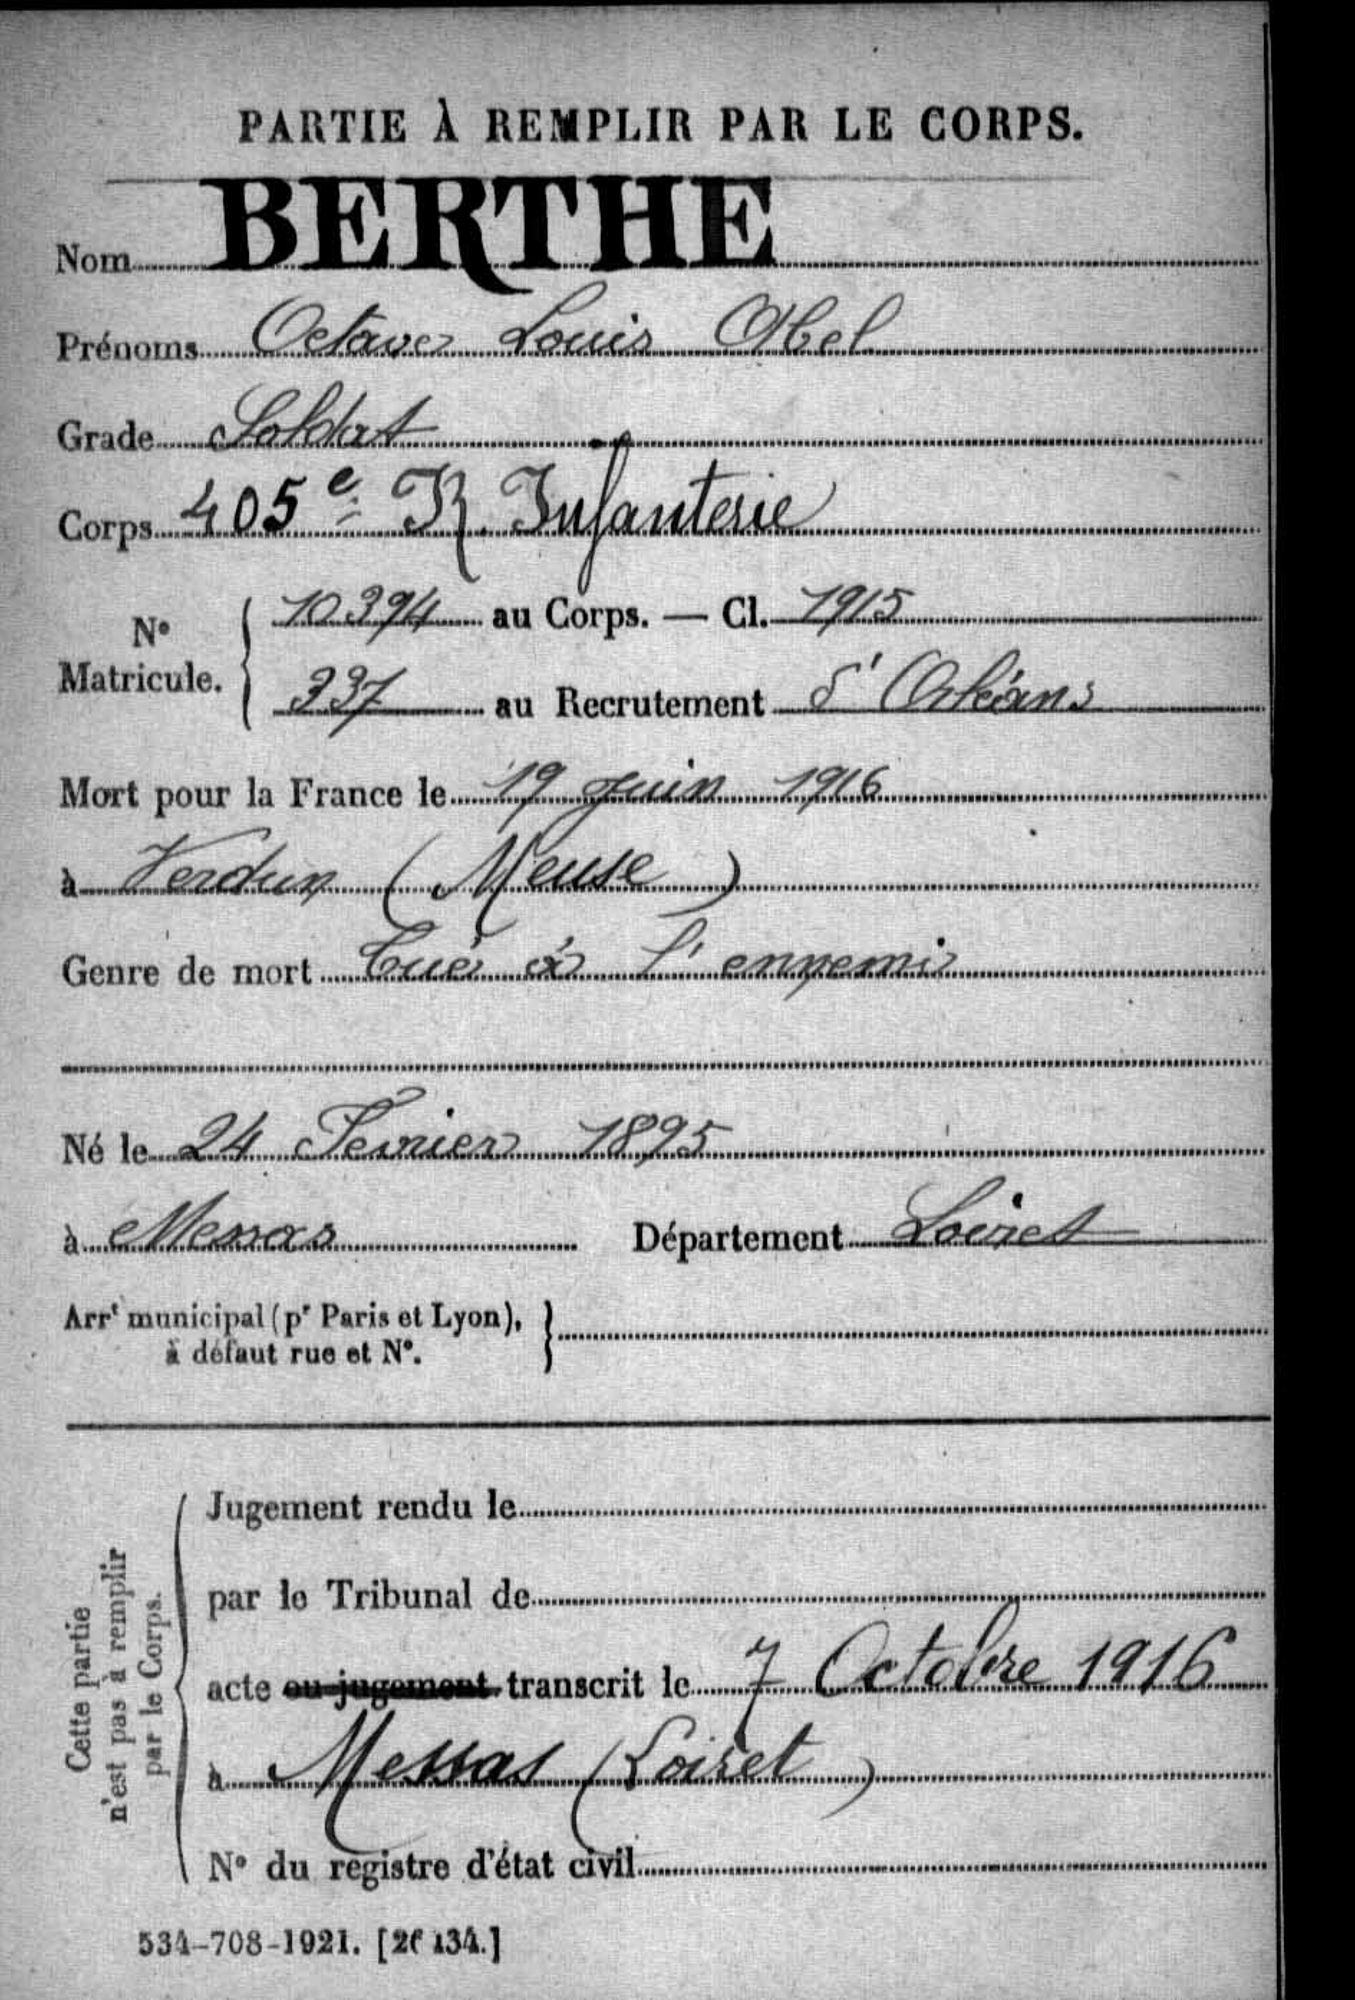 PARTIE À REMPLIR PAR LE CORPS.
Nom BERTHE
Prénoms Octave Louis Abel
Grade Soldat
Corps 405e R. Infanterie
N° Matricule. { 10394 au Corps. — Cl. 1915
337 au Recrutement d'Orléans
Mort pour la France le 19 Juin 1916
à Verdun (Meuse)
Genre de mort Tué à l'ennemi
Né le 24 Fevrier 1895
à Messas Département Loiret
Arrt municipal (pr Paris et Lyon), }
à défaut rue et N°.
Cette partie
n'est pas à remplir
par le Corps.
Jugement rendu le
par le Tribunal de
acte ou jugement transcrit le 7 Octobre 1916
à Messas (Loiret)
N° du registre d'état civil
534-708-1921. [26134.]